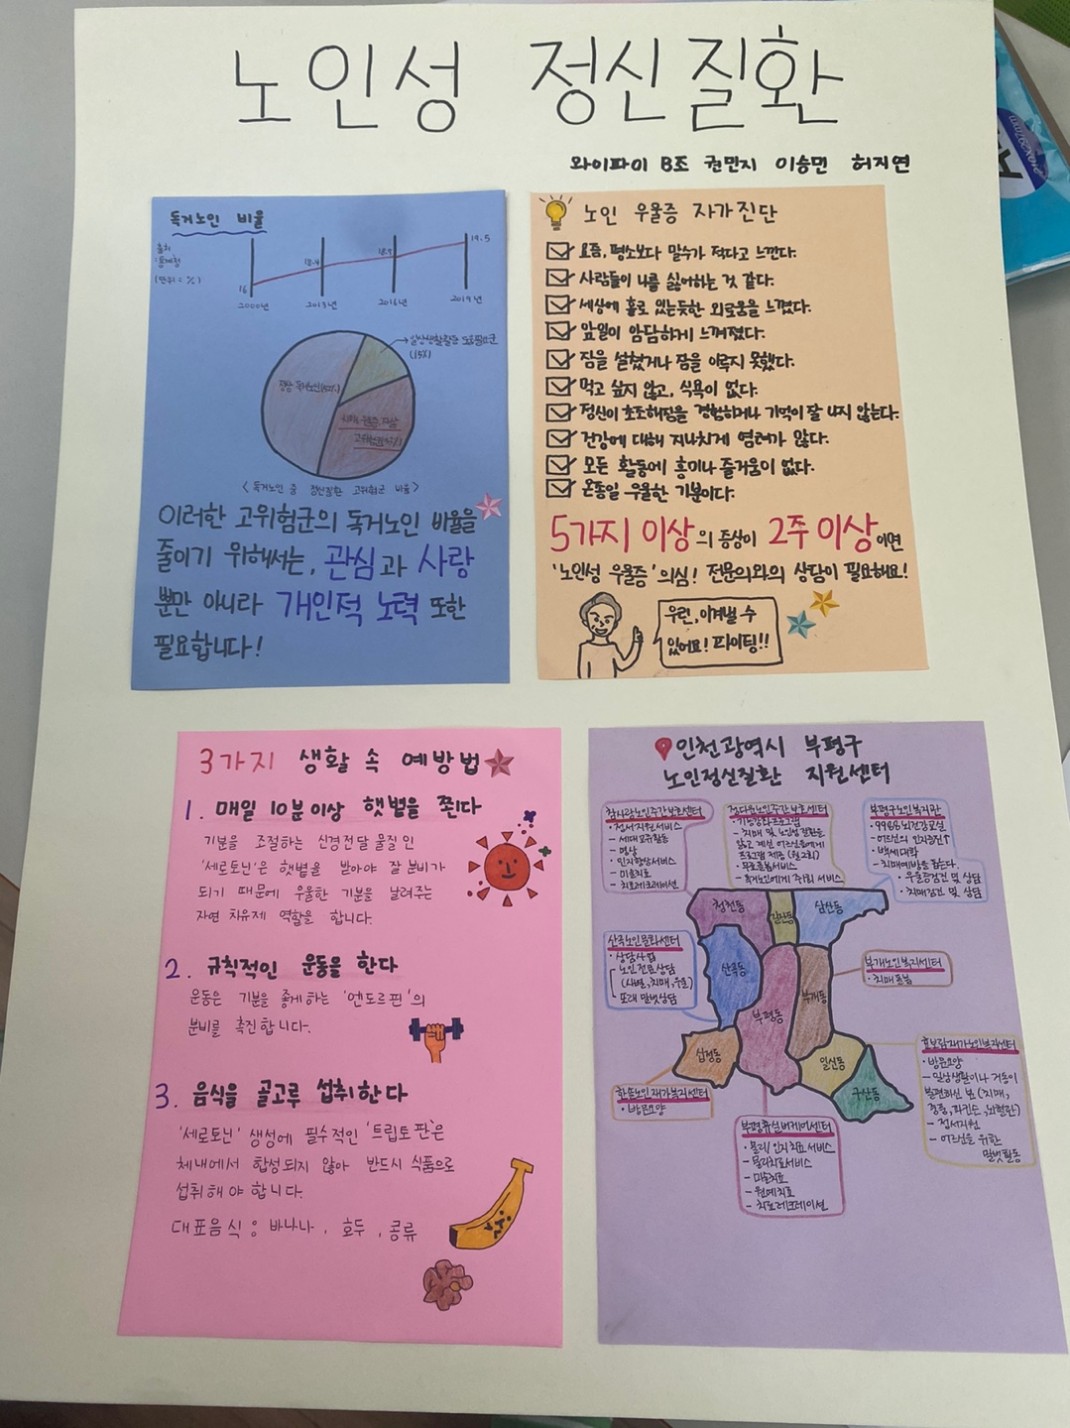 노인성 정신질환
와이파이 B조 권민지 이승민 허지연
독거노인 비율
출처
통계청
(단위 : %)
16
18.7
19.5
2000년
2013년
2016년
2019년
(15%)
고위험군
< 독거노인 중 정신질환 고위험군 비율 >
이러한 고위험군의 독거노인 비율을
줄이기 위해서는, 관심과 사랑
뿐만 아니라 개인적 노력 또한
필요합니다!
노인 우울증 자가진단
요즘, 평소보다 말수가 적다고 느낀다.
사람들이 나를 싫어하는 것 같다.
세상에 홀로 있는듯한 외로움을 느꼈다.
앞일이 암담하게 느껴졌다.
잠을 설쳤거나 잠을 이루지 못했다.
먹고 싶지 않고, 식욕이 없다.
정신이 초조해짐을 경험하거나 기억이 잘 나지 않는다.
건강에 대해 지나치게 염려가 많다.
모든 활동에 흥미나 즐거움이 없다.
온종일 우울한 기분이다.
5가지 이상의 증상이 2주 이상이면
'노인성 우울증' 의심! 전문의와의 상담이 필요해요!
우린, 이겨낼 수
있어요! 파이팅!!
3가지 생활 속 예방법
1. 매일 10분이상 햇볕을 쬔다
기분을 조절하는 신경전달 물질인
'세로토닌'은 햇볕을 받아야 잘 분비가
되기 때문에 우울한 기분을 날려주는
자연 치유제 역할을 합니다.
2. 규칙적인 운동을 한다
운동은 기분을 좋게하는 '엔도르핀'의
분비를 촉진합니다.
3. 음식을 골고루 섭취한다
'세로토닌' 생성에 필수적인 '트립토판'은
체내에서 합성되지 않아 반드시 식품으로
섭취해야 합니다.
대표음식 : 바나나, 호두, 콩류
인천광역시 부평구
노인정신질환 지원센터
참사랑노인주간보호센터
· 정서지원서비스
- 명상
- 인지향상서비스
- 미술치료
- 치료레크레이션
· 기능강화프로그램
부평구노인복지관
· 9988 뇌건강교실
- 백세대학
- 치매예방을 돕는다.
· 우울증검진 및 상담
· 치매검진 및 상담
산곡노인문화센터
· 상담사업
노인 전문상담
또래 말벗상담
부개노인복지센터
청천동
갈산동
삼산동
산곡동
부평동
부개동
십정동
일신동
구산동
· 방문요양
- 일상생활이나 거동이
불편하신 분 (치매,
중풍, 파킨슨, 뇌혈관)
- 정서지원
- 어르신을 위한
말벗활동
· 방문요양
· 물리/인지치료 서비스
- 물리치료서비스
- 미술치료
- 원예치료
- 치료레크레이션